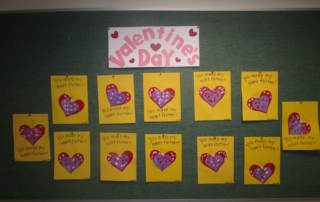 Valentine's
Day
You make my
heart flutter!
You make my
heart flutter!
You make my
heart flutter!
You make my
heart flutter!
You make my
heart flutter!
You make my
heart flutter!
You make my
heart flutter!
You make my
heart flutter!
You make my
heart flutter!
You make my
heart flutter!
You make my
heart flutter!
You make my
heart flutter!